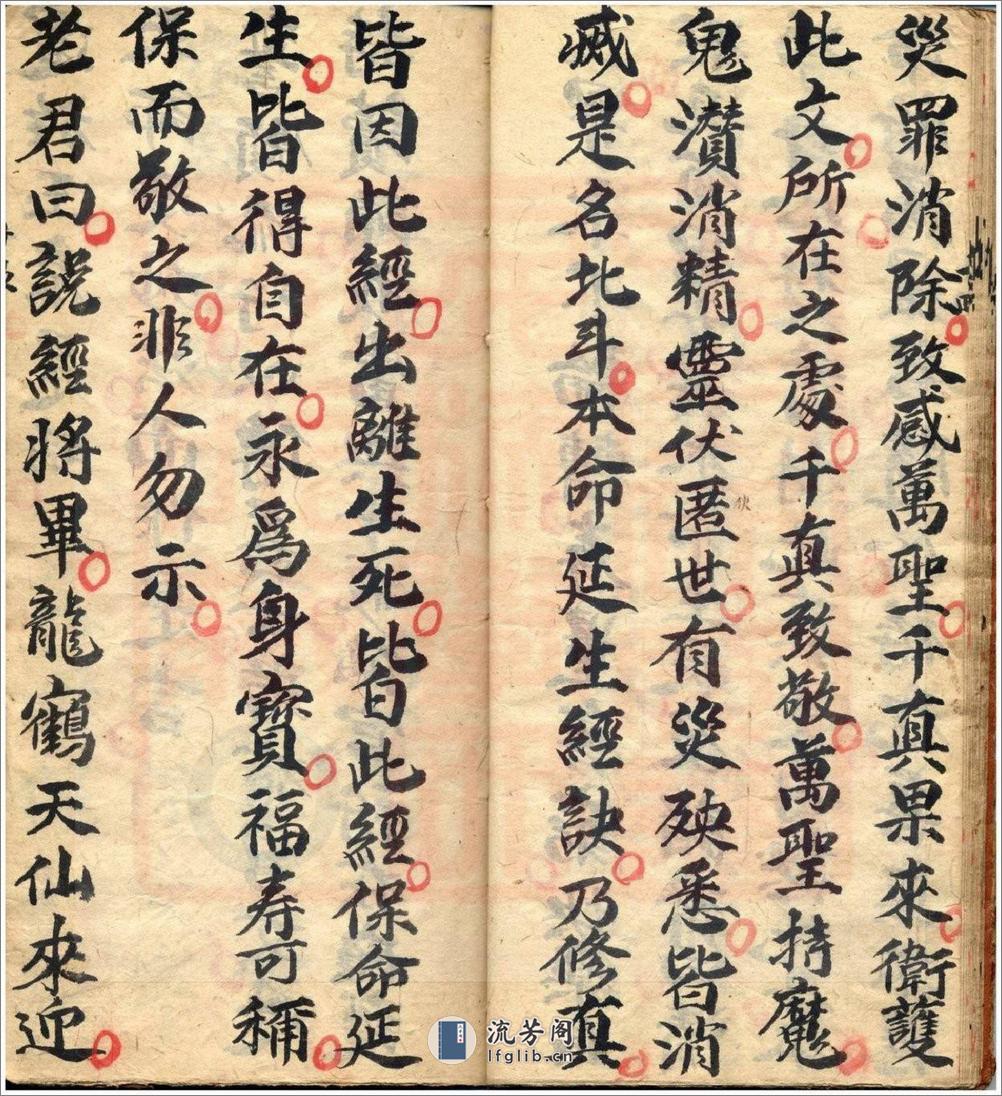 災罪消除致感萬聖千真果來衛護
此文所在之處千真致敬萬聖持魔
鬼濽消精靈伏匿世有災殃悉皆消
滅是名北斗本命延生經訣乃修真
皆因此經出離生死皆此經保命延
生皆得自在永爲身寶福寿可稱
保而敬之非人勿示
老君曰説經將畢龍鶴天仙來迎
流芳阁
lfglib.cn